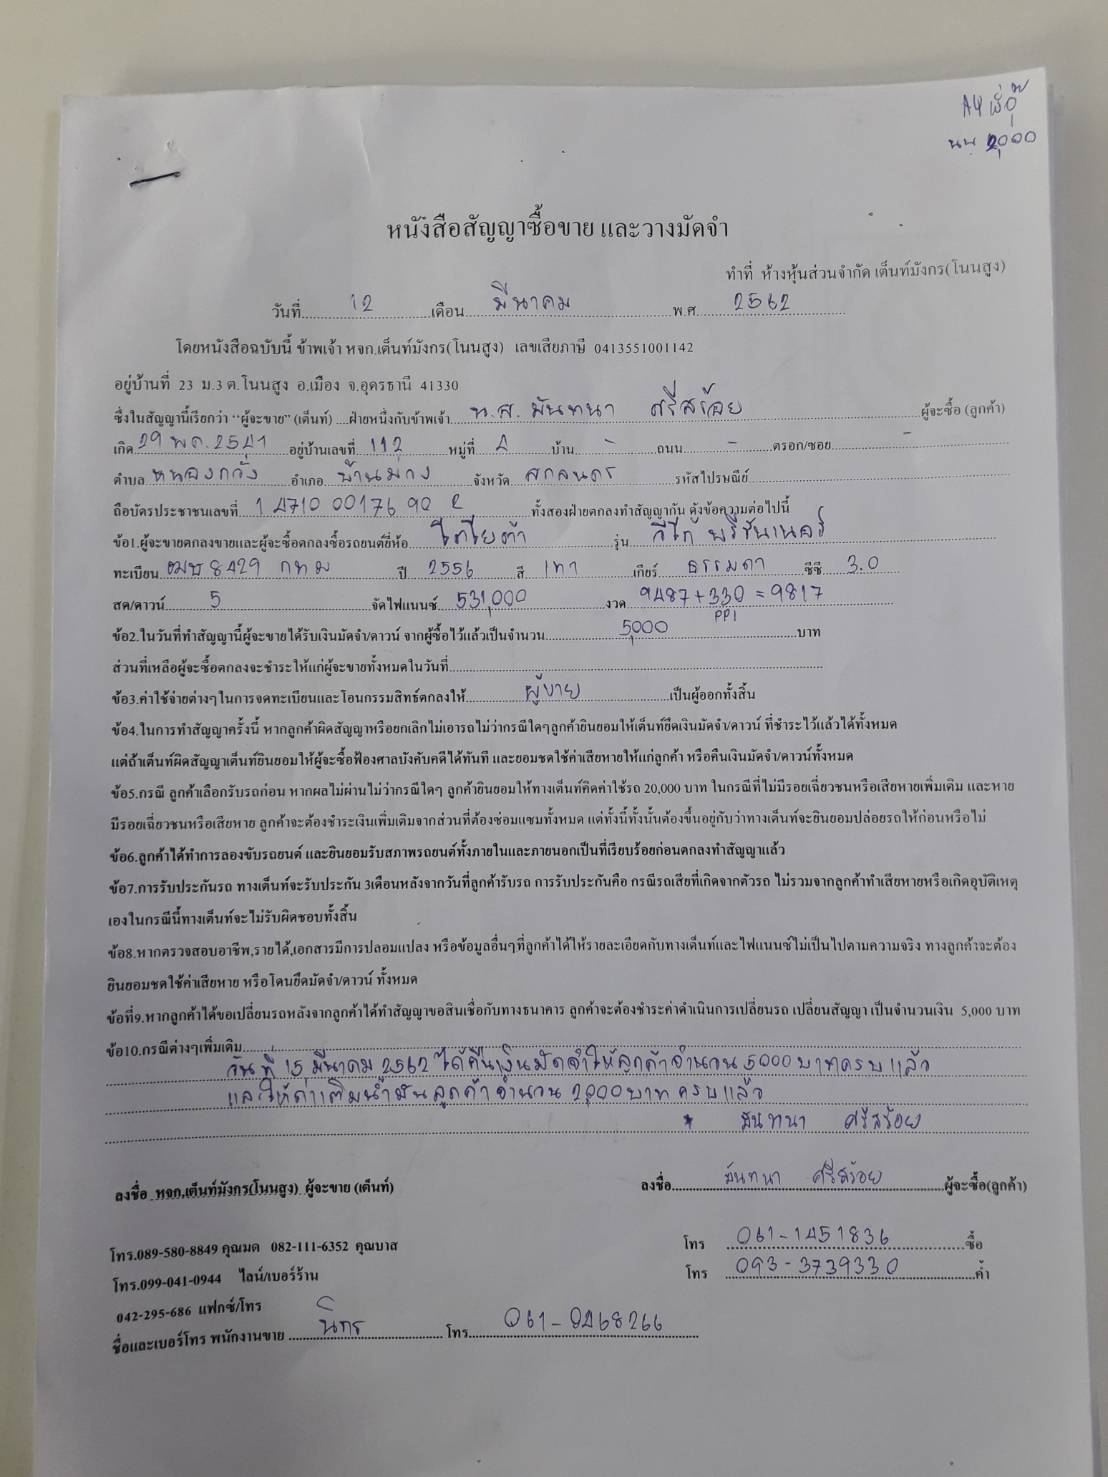 นน 2,000
หนังสือสัญญาซื้อขาย และวางมัดจำ
ทำที่ ห้างหุ้นส่วนจำกัด เต็นท์มังกร(โนนสูง)
วันที่ 12 เดือน มีนาคม พ.ศ. 2562
โดยหนังสือฉบับนี้ ข้าพเจ้า หจก.เต็นท์มังกร(โนนสูง) เลขเสียภาษี 0413551001142
อยู่บ้านที่ 23 ม.3 ต.โนนสูง อ.เมือง จ.อุดรธานี 41330
ซึ่งในสัญญานี้เรียกว่า "ผู้จะขาย" (เต็นท์) ....ฝ่ายหนึ่งกับข้าพเจ้า น.ส. มันทนา ศรีสร้อย ผู้จะซื้อ (ลูกค้า)
เกิด 29 พ.ค. 2541 อยู่บ้านเลขที่ 112 หมู่ที่ 4 บ้าน - ถนน - ตรอก/ซอย -
ตำบล หนองกวั่ง อำเภอ บ้านม่วง จังหวัด สกลนคร รหัสไปรษณีย์
ถือบัตรประชาชนเลขที่ 1 4710 00176 90 2 ทั้งสองฝ่ายตกลงทำสัญญากัน ดังข้อความต่อไปนี้
ข้อ1.ผู้จะขายตกลงขายและผู้จะซื้อตกลงซื้อรถยนต์ยี่ห้อ โตโยต้า รุ่น วีโก้ พรีรันเนอร์
ทะเบียน 8429 กทม ปี 2556 สี เทา เกียร์ ธรรมดา ซีซี 3.0
สด/ดาวน์ 5 จัดไฟแนนซ์ 531,000 งวด 9487+330 = 9817
PPI
ข้อ2.ในวันที่ทำสัญญานี้ผู้จะขายได้รับเงินมัดจำ/ดาวน์ จากผู้ซื้อไว้แล้วเป็นจำนวน 5,000 บาท
ส่วนที่เหลือผู้จะซื้อตกลงจะชำระให้แก่ผู้จะขายทั้งหมดในวันที่
ข้อ3.ค่าใช้จ่ายต่างๆในการจดทะเบียนและโอนกรรมสิทธ์ตกลงให้ ผู้ขาย เป็นผู้ออกทั้งสิ้น
ข้อ4.ในการทำสัญญาครั้งนี้ หากลูกค้าผิดสัญญาหรือยกเลิกไม่เอารถไม่ว่ากรณีใดๆลูกค้ายินยอมให้เต็นท์ยึดเงินมัดจำ/ดาวน์ ที่ชำระไว้แล้วได้ทั้งหมด
แต่ถ้าเต็นท์ผิดสัญญาเต็นท์ยินยอมให้ผู้จะซื้อฟ้องศาลบังคับคดีได้ทันที และยอมชดใช้ค่าเสียหายให้แก่ลูกค้า หรือคืนเงินมัดจำ/ดาวน์ทั้งหมด
ข้อ5.กรณี ลูกค้าเลือกรับรถก่อน หากผลไม่ผ่านไม่ว่ากรณีใดๆ ลูกค้ายินยอมให้ทางเต็นท์คิดค่าใช้รถ 20,000 บาท ในกรณีที่ไม่มีรอยเฉี่ยวชนหรือเสียหายเพิ่มเติม และหาย
มีรอยเฉี่ยวชนหรือเสียหาย ลูกค้าจะต้องชำระเงินเพิ่มเติมจากส่วนที่ต้องซ่อมแซมทั้งหมด แต่ทั้งนี้ทั้งนั้นต้องขึ้นอยู่กับว่าทางเต็นท์จะยินยอมปล่อยรถให้ก่อนหรือไม่
ข้อ6.ลูกค้าได้ทำการลองขับรถยนต์ และยินยอมรับสภาพรถยนต์ทั้งภายในและภายนอกเป็นที่เรียบร้อยก่อนตกลงทำสัญญาแล้ว
ข้อ7.การรับประกันรถ ทางเต็นท์จะรับประกัน 3เดือนหลังจากวันที่ลูกค้ารับรถ การรับประกันคือ กรณีรถเสียที่เกิดจากตัวรถ ไม่รวมจากลูกค้าทำเสียหายหรือเกิดอุบัติเหตุ
เองในกรณีนี้ทางเต็นท์จะไม่รับผิดชอบทั้งสิ้น
ข้อ8.หากตรวจสอบอาชีพ,รายได้,เอกสารมีการปลอมแปลง หรือข้อมูลอื่นๆที่ลูกค้าได้ให้รายละเอียดกับทางเต็นท์และไฟแนนซ์ไม่เป็นไปตามความจริง ทางลูกค้าจะต้อง
ยินยอมชดใช้ค่าเสียหาย หรือโดนยึดมัดจำ/ดาวน์ ทั้งหมด
ข้อที่9.หากลูกค้าได้ขอเปลี่ยนรถหลังจากลูกค้าได้ทำสัญญาขอสินเชื่อกับทางธนาคาร ลูกค้าจะต้องชำระค่าดำเนินการเปลี่ยนรถ เปลี่ยนสัญญา เป็นจำนวนเงิน 5,000 บาท
ข้อ10.กรณีต่างๆเพิ่มเติม
วันที่ 15 มีนาคม 2562 ได้คืนเงินมัดจำให้ลูกค้าจำนวน 5000 บาทครบแล้ว
และให้ค่าเติมน้ำมันลูกค้าจำนวน 2,000 บาท ครบแล้ว
* มันทนา ศรีสร้อย
ลงชื่อ หจก.เต็นท์มังกร(โนนสูง) ผู้จะขาย (เต็นท์) ลงชื่อ มันทนา ศรีสร้อย ผู้จะซื้อ(ลูกค้า)
โทร.089-580-8849 คุณมด 082-111-6352 คุณบาส โทร 061-1451836 ซื้อ
โทร.099-041-0944 ไลน์/เบอร์ร้าน โทร 093-3739330 ค้ำ
042-295-686 แฟกซ์/โทร
ชื่อและเบอร์โทร พนักงานขาย นิกร โทร 061-9468266